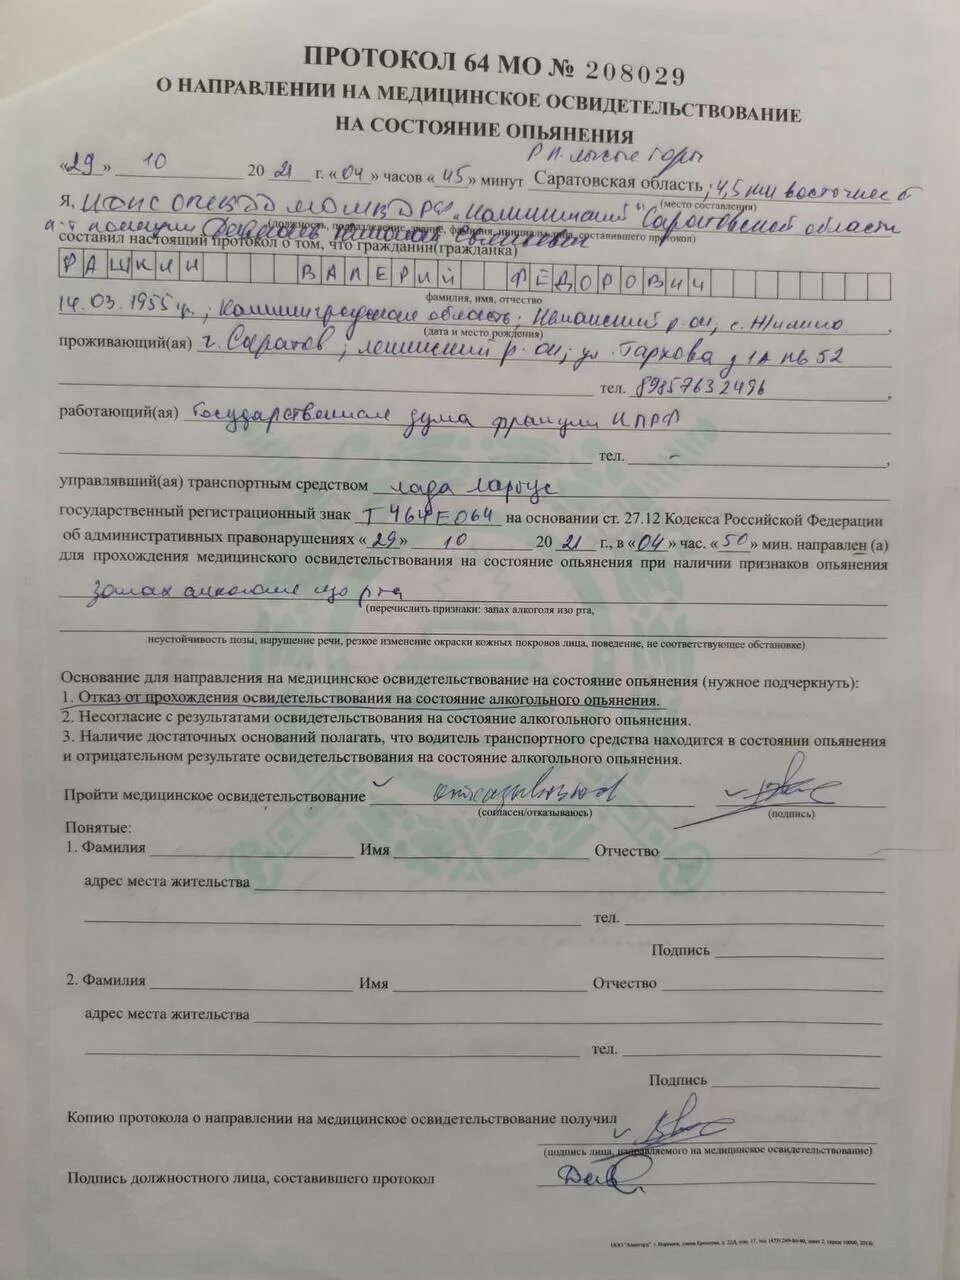 ПРОТОКОЛ 64 МО № 208029
О НАПРАВЛЕНИИ НА МЕДИЦИНСКОЕ ОСВИДЕТЕЛЬСТВОВАНИЕ
НА СОСТОЯНИЕ ОПЬЯНЕНИЯ
Р.п. Лысые Горы
«29» 10 2021 г. «04» часов «45» минут Саратовская область, 4,5 км восточнее
(место составления)
Я, ИДПС ОГИБДД МО МВД РФ "Калининский" Саратовской области
л-т полиции
(должность, подразделение, звание, фамилия, инициалы лица, составившего протокол)
составил настоящий протокол о том, что гражданин(гражданка)
РАШКИН ВАЛЕРИЙ ФЕДОРОВИЧ
фамилия, имя, отчество
14.03.1955 г.р., Калининградская область, р-он, с. Жилино
(дата и место рождения)
проживающий(ая) г. Саратов, Ленинский р-он, ул. Тархова д 1А кв 52
тел. 89857632496
работающий(ая) Государственная дума фракции КПРФ
тел. –
управлявший(ая) транспортным средством Лада Ларгус
государственный регистрационный знак Т464ЕО64 на основании ст. 27.12 Кодекса Российской Федерации
об административных правонарушениях «29» 10 2021 г., в «04» час. «50» мин. направлен (а)
для прохождения медицинского освидетельствования на состояние опьянения при наличии признаков опьянения
запах алкоголя изо рта
(перечислить признаки: запах алкоголя изо рта,
неустойчивость позы, нарушение речи, резкое изменение окраски кожных покровов лица, поведение, не соответствующее обстановке)
Основание для направления на медицинское освидетельствование на состояние опьянения (нужное подчеркнуть):
1. Отказ от прохождения освидетельствования на состояние алкогольного опьянения.
2. Несогласие с результатами освидетельствования на состояние алкогольного опьянения.
3. Наличие достаточных оснований полагать, что водитель транспортного средства находится в состоянии опьянения
и отрицательном результате освидетельствования на состояние алкогольного опьянения.
Пройти медицинское освидетельствование отказываюсь
(согласен/отказываюсь) (подпись)
Понятые:
1. Фамилия Имя Отчество
адрес места жительства
тел.
Подпись
2. Фамилия Имя Отчество
адрес места жительства
тел.
Подпись
Копию протокола о направлении на медицинское освидетельствование получил
(подпись лица, направляемого на медицинское освидетельствование)
Подпись должностного лица, составившего протокол